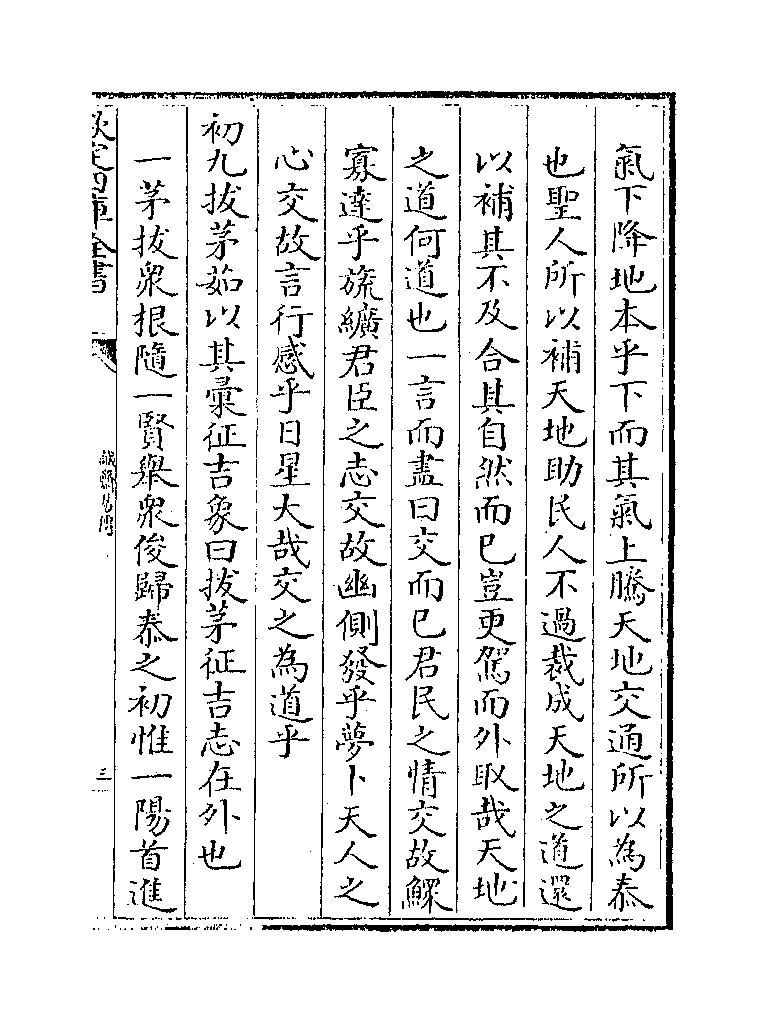 氣下降地本乎下而其氣上騰天地交通所以為泰
也聖人所以補天地助民人不過裁成天地之道還
以補其不及合其自然而已豈更駕而外取哉天地
之道何道也一言而盡曰交而已君民之情交故鰥
寡達乎旒纊君臣之志交故幽側發乎夢卜天人之
心交故言行感乎日星大哉交之為道乎
初九拔茅茹以其彚征吉象曰拔茅征吉志在外也
一茅拔衆根隨一賢舉衆俊歸泰之初惟一陽首進
欽定四庫全書
誠齋易傳
三